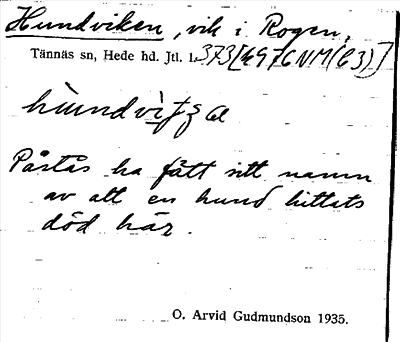 Hundviken, vik i Rogen,
Tännäs sn, Hede hd. Jtl. L.
Påstås ha fått sitt namn
av att en hund hittats
död här.
O. Arvid Gudmundson 1935.